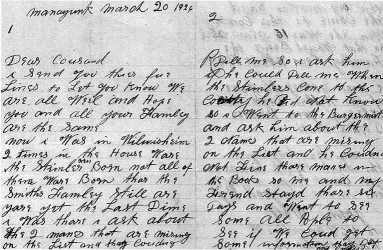 manayunk march 20 1924
1
Dear Cousand
i Send You thies fue
Lines to Let You Know We
are all Well and Hope
you and all your Hamley
are the Same
now i Was in Wilmishein
2 times in the House Ware
the Stimler Born not all of
them Ware Born thar the
Smiths Hamley Still are
yas yet the Last Dime
i Was thar i ask about
the 2 mans that are missing
on the List and thay Couding
2
Dell me so i ask him
if he Could Dell me When
the Stimlers Come to the
Country he Did not Know
so i Went to the Burgermist
and ask him about the
2 dams that are missing
on the List and he Couldnd
not Hind thare mans in
the Books so me and my
Friend Stayt thare six
Days and Went to See
Some all Pople to
See if We Could get
Some informations